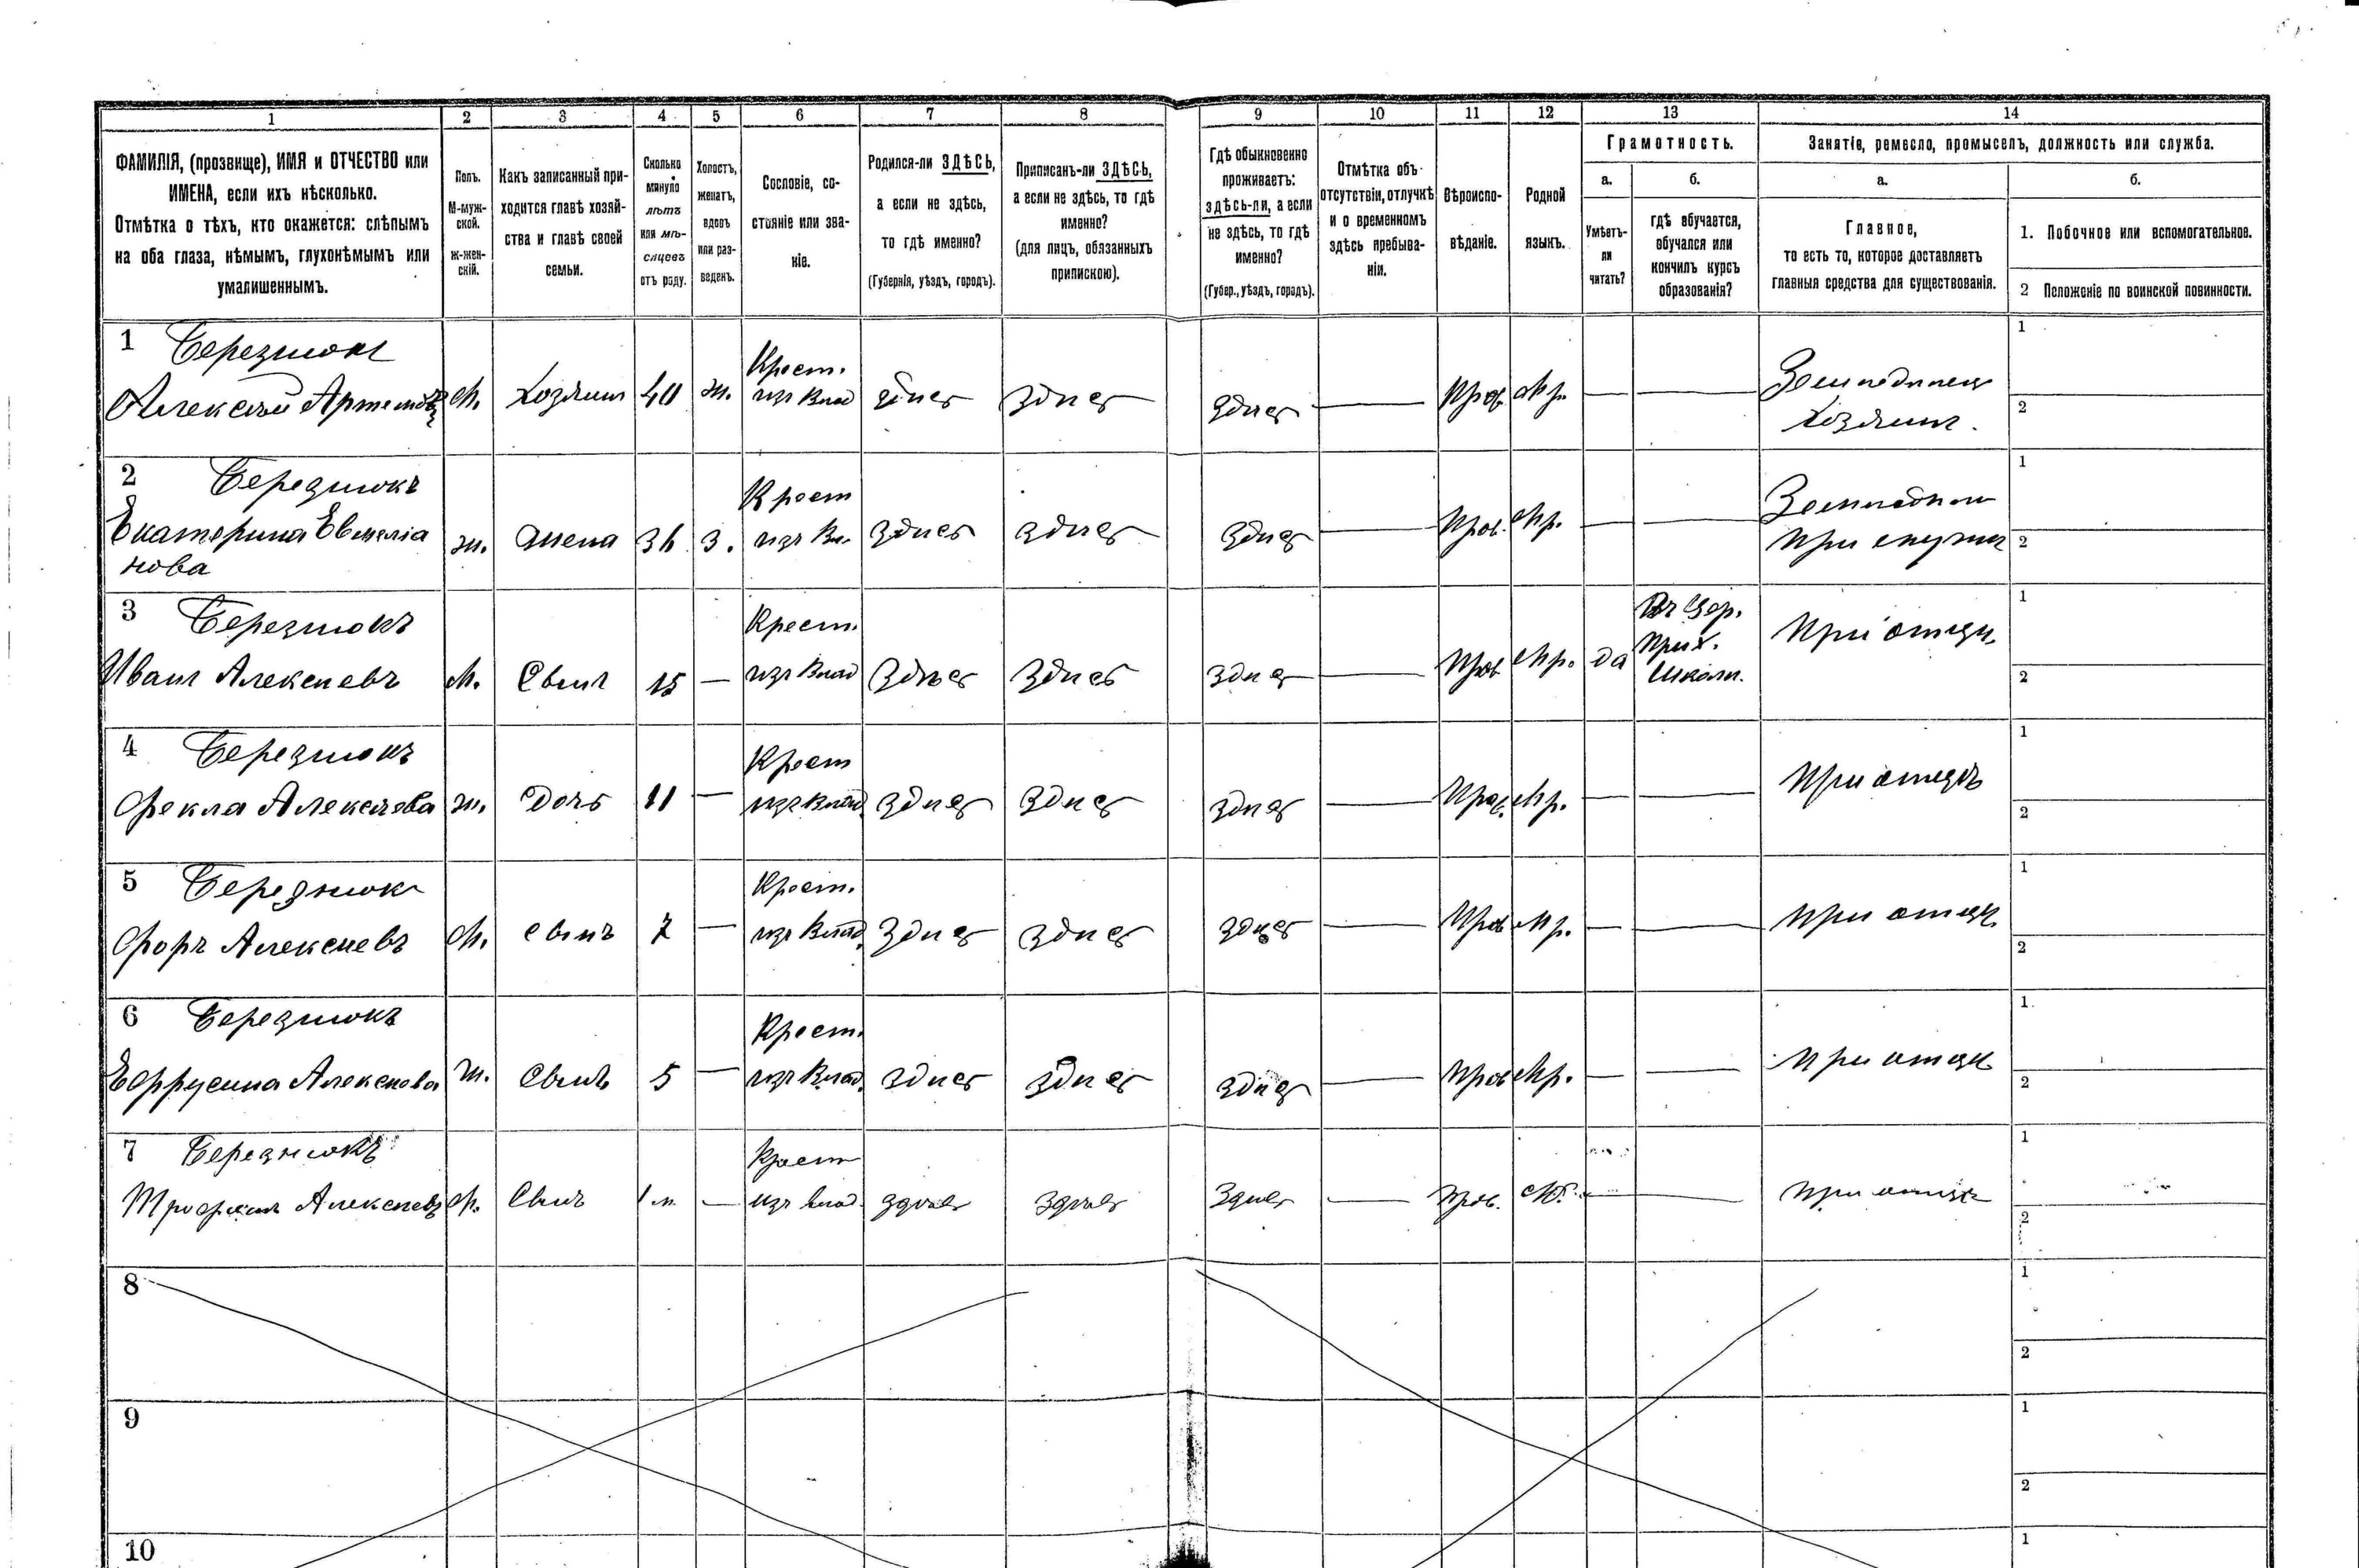 1 2 3 4 5 6 7 8 9 10 11 12 13 14
ФАМИЛІЯ, (прозвище), ИМЯ и ОТЧЕСТВО или
ИМЕНА, если ихъ нѣсколько.
Отмѣтка о тѣхъ, кто окажется: слѣпымъ
на оба глаза, нѣмымъ, глухонѣмымъ или
умалишеннымъ.
Полъ.
М-муж-
ской.
ж-жен-
скій.
Какъ записанный при-
ходится главѣ хозяй-
ства и главѣ своей
семьи.
Сколько
минуло
лѣтъ
или мѣ-
сяцевъ
отъ роду.
Холостъ,
женатъ,
вдовъ
или раз-
веденъ.
Сословіе, со-
стояніе или зва-
ніе.
Родился-ли ЗДѢСЬ,
а если не здѣсь,
то гдѣ именно?
(Губернія, уѣздъ, городъ).
Приписанъ-ли ЗДѢСЬ,
а если не здѣсь, то гдѣ
именно?
(для лицъ, обязанныхъ
припискою).
Гдѣ обыкновенно
проживаетъ:
здѣсь-ли, а если
не здѣсь, то гдѣ
именно?
(Губер., уѣздъ, городъ).
Отмѣтка объ
отсутствіи, отлучкѣ
и о временномъ
здѣсь пребыва-
ніи.
Вѣроиспо-
вѣданіе.
Родной
языкъ.
Грамотность.
а.
Умѣетъ-
ли
читать?
б.
гдѣ обучается,
обучался или
кончилъ курсъ
образованія?
Занятіе, ремесло, промыселъ, должность или служба.
а.
Главное,
то есть то, которое доставляетъ
главныя средства для существованія.
б.
1. Побочное или вспомогательное.
2 Положеніе по воинской повинности.
1 Березнюкъ Крест. 1
Алексѣй Артемовъ М. Хозяинъ 40 ж. изъ Влад здѣсь здѣсь здѣсь — Прав. Мр. — — Земледѣлец
Хозяинъ. 2
2 Березнюкъ Крест 1
Екатерина Евмелія ж. жена 36 З. изъ Вл. здѣсь здѣсь здѣсь — Прав. Мр. — — Земледѣл
нова При мужѣ 2
3 Березнюкъ Крест. Въ Цер. 1
Иванъ Алексѣевъ М. Сынъ 15 — изъ Влад здѣсь здѣсь здѣсь — Прав Мр. да Прих. При отцѣ
Школѣ. 2
4 Березнюкъ Крест 1
Фекла Алексѣева ж. Дочь 11 — изъ Влад. здѣсь здѣсь здѣсь — Прав. Мр. — — При отцѣ
2
5 Березнюкъ Крест. 1
Алексѣевъ М. сынъ 7 — изъ Влад. здѣсь здѣсь здѣсь — Прав Мр. — — При отцѣ
2
6 Березнюкъ Крест. 1
Ефрусина Алексѣева ж. Сынъ 5 — изъ Влад. здѣсь здѣсь здѣсь — Прав Мр. — — При отцѣ
2
7 Березнюкъ Крест 1
Трофимъ Алексѣевъ М. Сынъ 1 м. — изъ влад. здѣсь здѣсь здѣсь — Прав. — при отцѣ
2
8 1
2
9 1
2
10 1